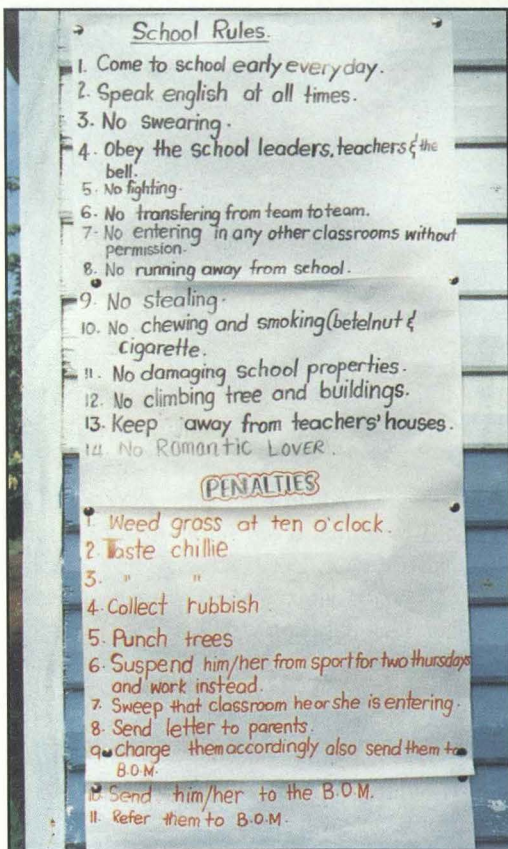 School Rules.
1. Come to school early everyday.
2. Speak english at all times.
3. No swearing.
4. Obey the school leaders, teachers & the
bell.
5. No fighting.
6. No transfering from team to team.
7. No entering in any other classrooms without
permission.
8. No running away from school.
9. No stealing.
10. No chewing and smoking (betelnut &
cigarette.
11. No damaging school properties.
12. No climbing tree and buildings.
13. Keep away from teachers' houses.
14. No Romantic LOVER.
PENALTIES
1. Weed grass at ten o'clock.
2. Taste chillie
3. " "
4. Collect rubbish.
5. Punch trees
6. Suspend him/her from sport for two thursdays
and work instead.
7. Sweep that classroom he or she is entering.
8. Send letter to parents.
9. charge them accordingly also send them to
B.O.M.
10. Send him/her to the B.O.M.
11. Refer them to B.O.M.